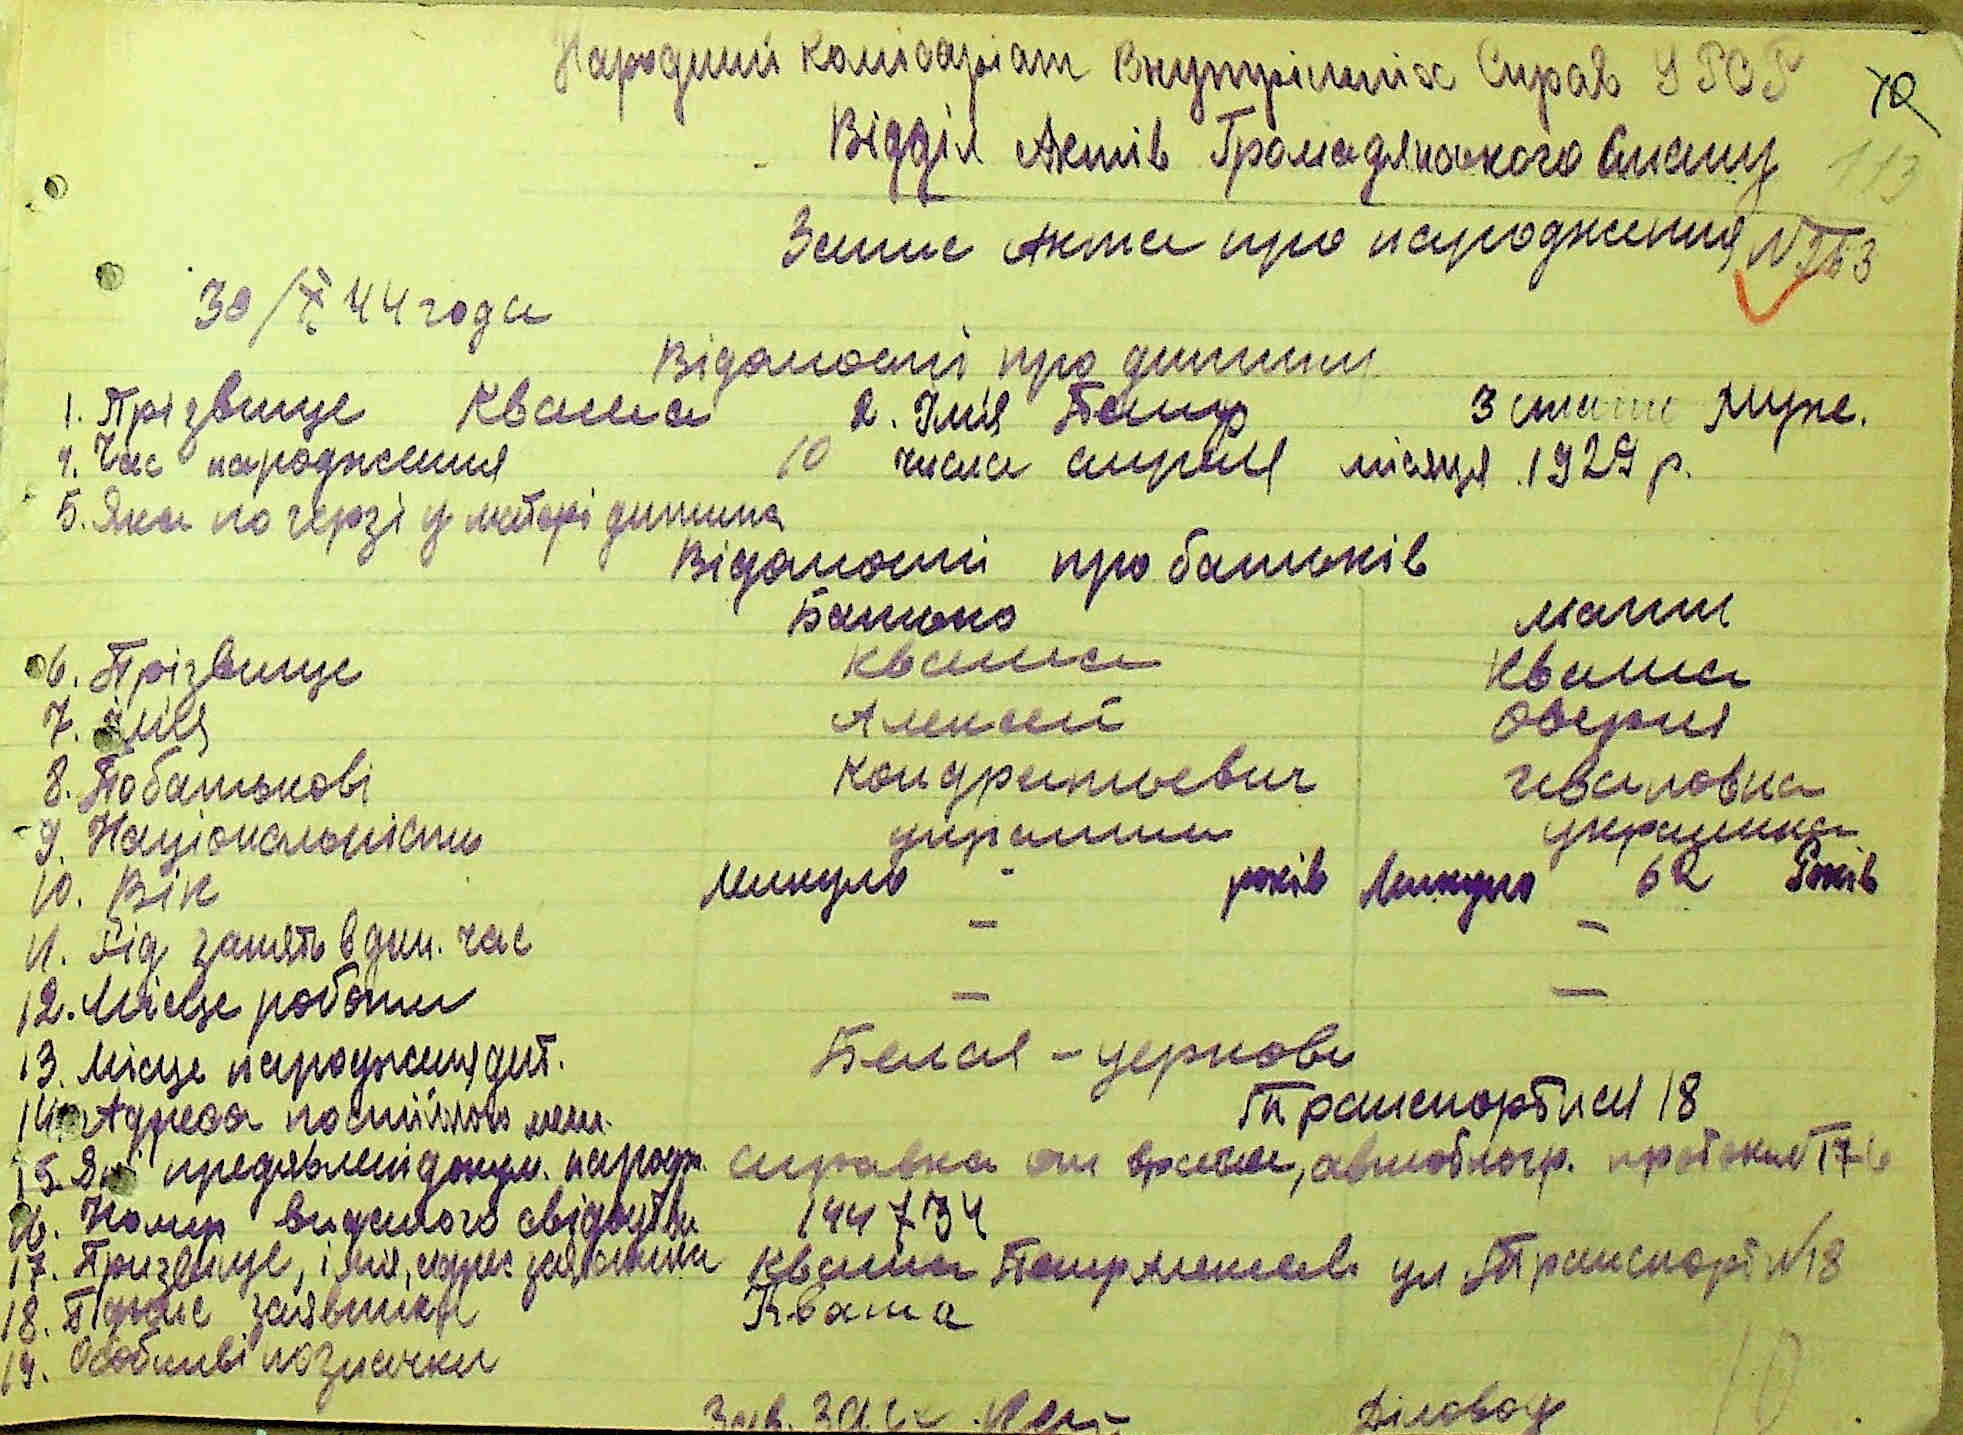 Народний Комісаріат Внутрішніх Справ УРСР
70
Відділ Актів Громадянського Стану 113
Запис Акта про народження N 763
30/X 44 года
Відомості про дитини
1. Прізвище Кваша 2. Імʼя Петр 3 стать Муж.
4. Час народження 10 числа апреля місяця 1929 р.
5. Яка по черзі у матері дитина
Відомості про батьків
Батько мати
6. Прізвище Кваша Кваша
7. Імʼя Алексей
8. Побатькові Кондратьевич Ивановна
9. Національність украинец украинка
10. Вік Минуло - років Минуло 62 Років
11. Рід занять в дан. час - -
12. Місце роботи - -
13. Місце народження дит. Белая-церковь
14. Адреса постійного меш. Транспортная 18
15. Які предявлені докум. народж. справка от, автобиогр. протокол
16. Номер виданого свідоцтва 144734
17. Призвище, імʼя, адрес заявника Кваша Петр Алексеев. ул Транспорт N18
18. Підпис заявника Кваша
19. Особливі позначки
10
Зав. ЗАГС Діловод